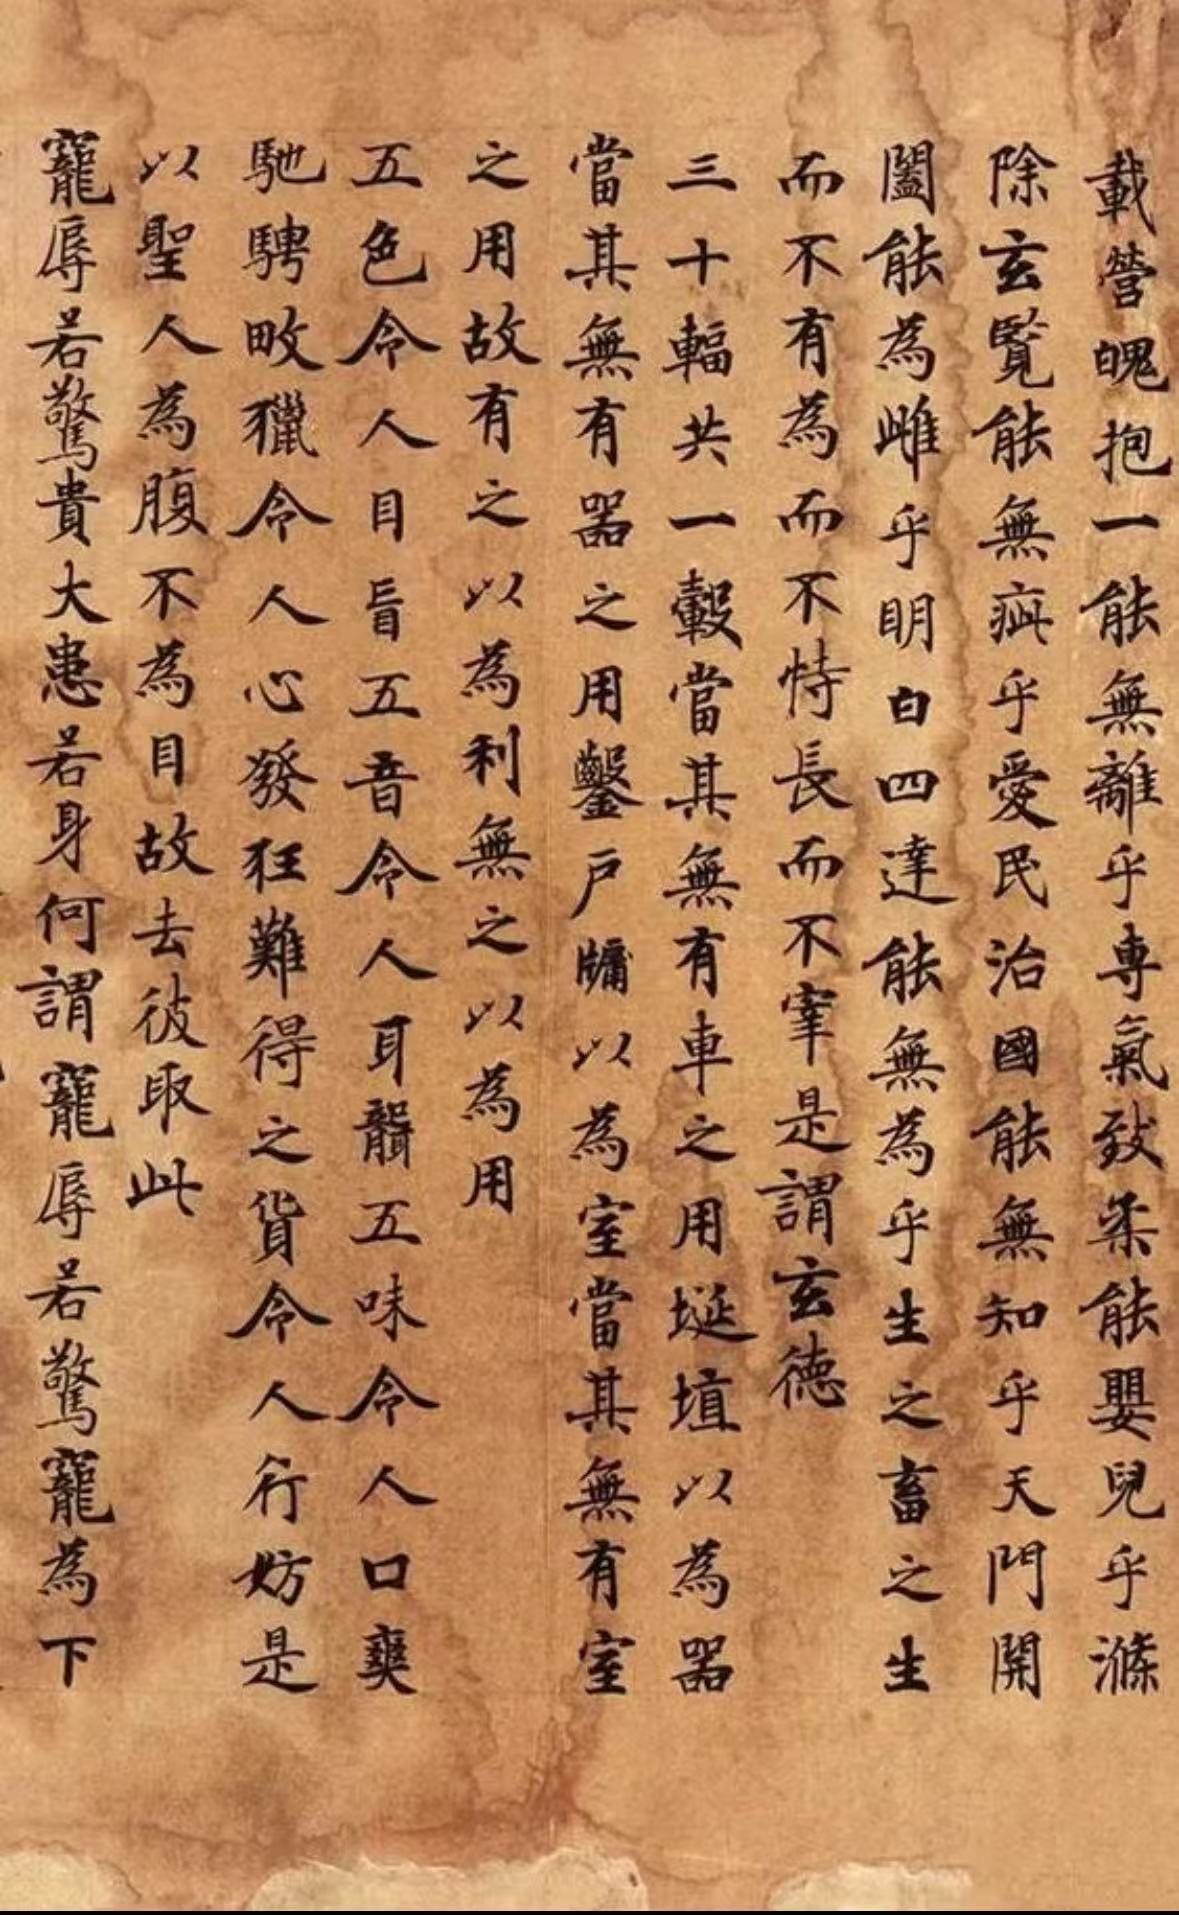 載營魄抱一能無離乎專氣致柔能嬰兒乎滌
除玄覽能無疵乎愛民治國能無知乎天門開
闔能為雌乎明白四達能無為乎生之畜之生
而不有為而不恃長而不宰是謂玄德
三十輻共一轂當其無有車之用埏埴以為器
當其無有器之用鑿戶牖以為室當其無有室
之用故有之以為利無之以為用
五色令人目盲五音令人耳聾五味令人口爽
馳騁畋獵令人心發狂難得之貨令人行妨是
以聖人為腹不為目故去彼取此
寵辱若驚貴大患若身何謂寵辱若驚寵為下